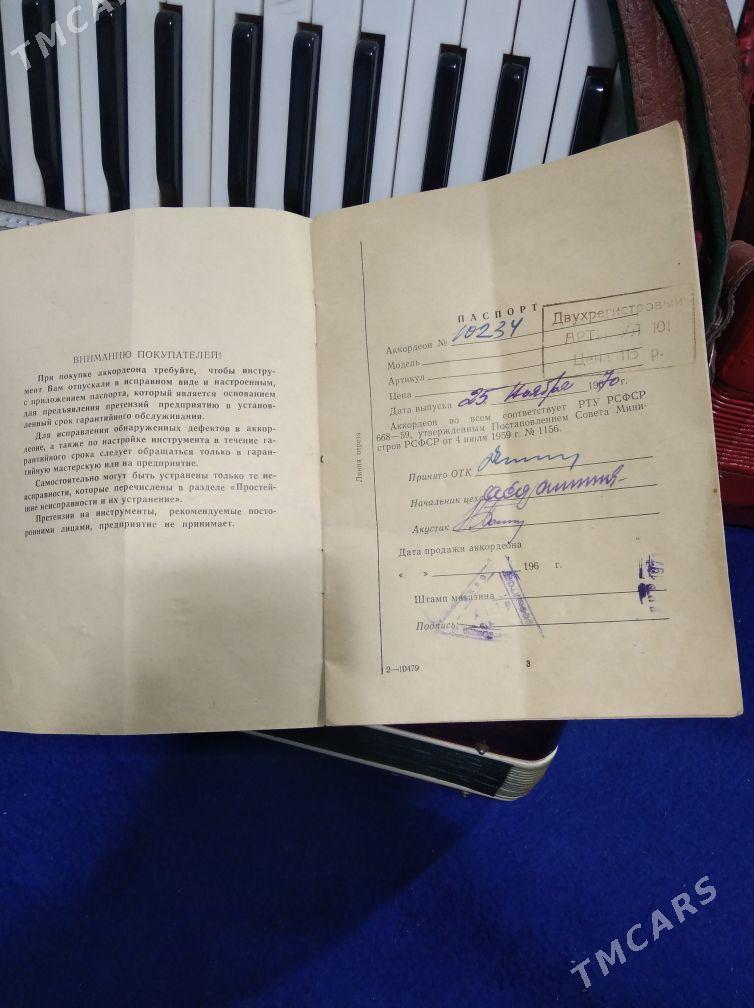 TMCARS
ВНИМАНИЮ ПОКУПАТЕЛЕЙ!
При покупке аккордеона требуйте, чтобы инстру-
мент Вам отпускали в исправном виде и настроенным,
с приложением паспорта, который является основанием
для предъявления претензий предприятию в установ-
ленный срок гарантийного обслуживания.
Для исправления обнаруженных дефектов в аккор-
деоне, а также по настройке инструмента в течение га-
рантийного срока следует обращаться только в гаран-
тийную мастерскую или на предприятие.
Самостоятельно могут быть устранены только те не-
исправности, которые перечислены в разделе «Простей-
шие неисправности и их устранение».
Претензии на инструменты, рекомендуемые посто-
ронними лицами, предприятие не принимает.
Линия отреза
ПАСПОРТ
Двухрегистровый
АРТ. 101
Цена 115 р.
Аккордеон № 10234
Модель
Артикул
Цена
Дата выпуска 25 Ноября 1970 г.
Аккордеон во всем соответствует РТУ РСФСР
668—59, утвержденным Постановлением Совета Мини-
стров РСФСР от 4 июля 1959 г. № 1156.
Принято ОТК
Начальник цеха
Акустик
Дата продажи аккордеона
« » 196 г.
Штамп магазина
Подпись:
2—10479
3
TMCARS